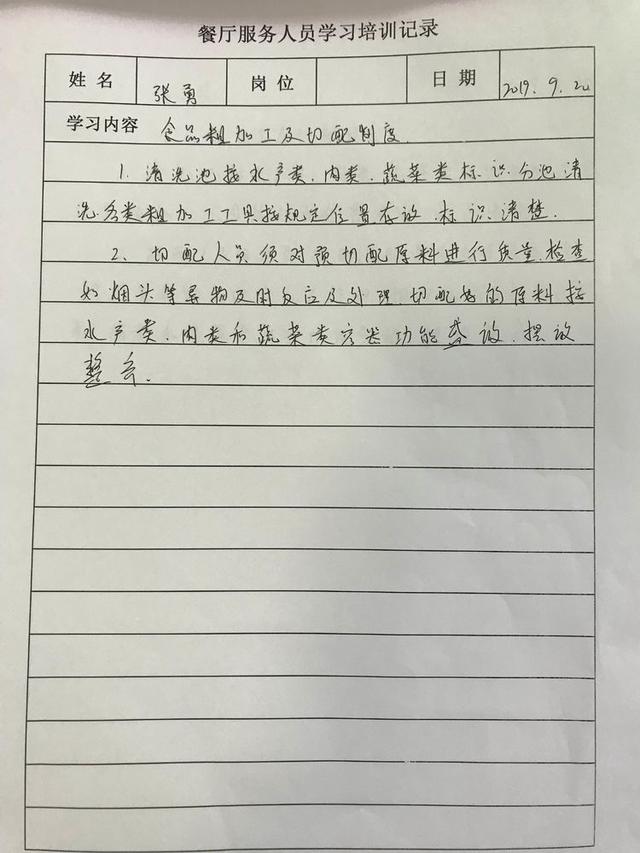 餐厅服务人员学习培训记录
姓名 张勇 岗位 日期 2019.9.20
学习内容 食品粗加工及切配制度.
1. 清洗池按水产类.肉类.蔬菜类标识分池清
洗.各类粗加工工具按规定位置存放.标识清楚.
2. 切配人员须对预切配原料进行质量检查
如烟头等异物及时反应及处理.切配好的原料按
水产类.肉类和蔬菜类容器功能盛放.摆放
整齐.